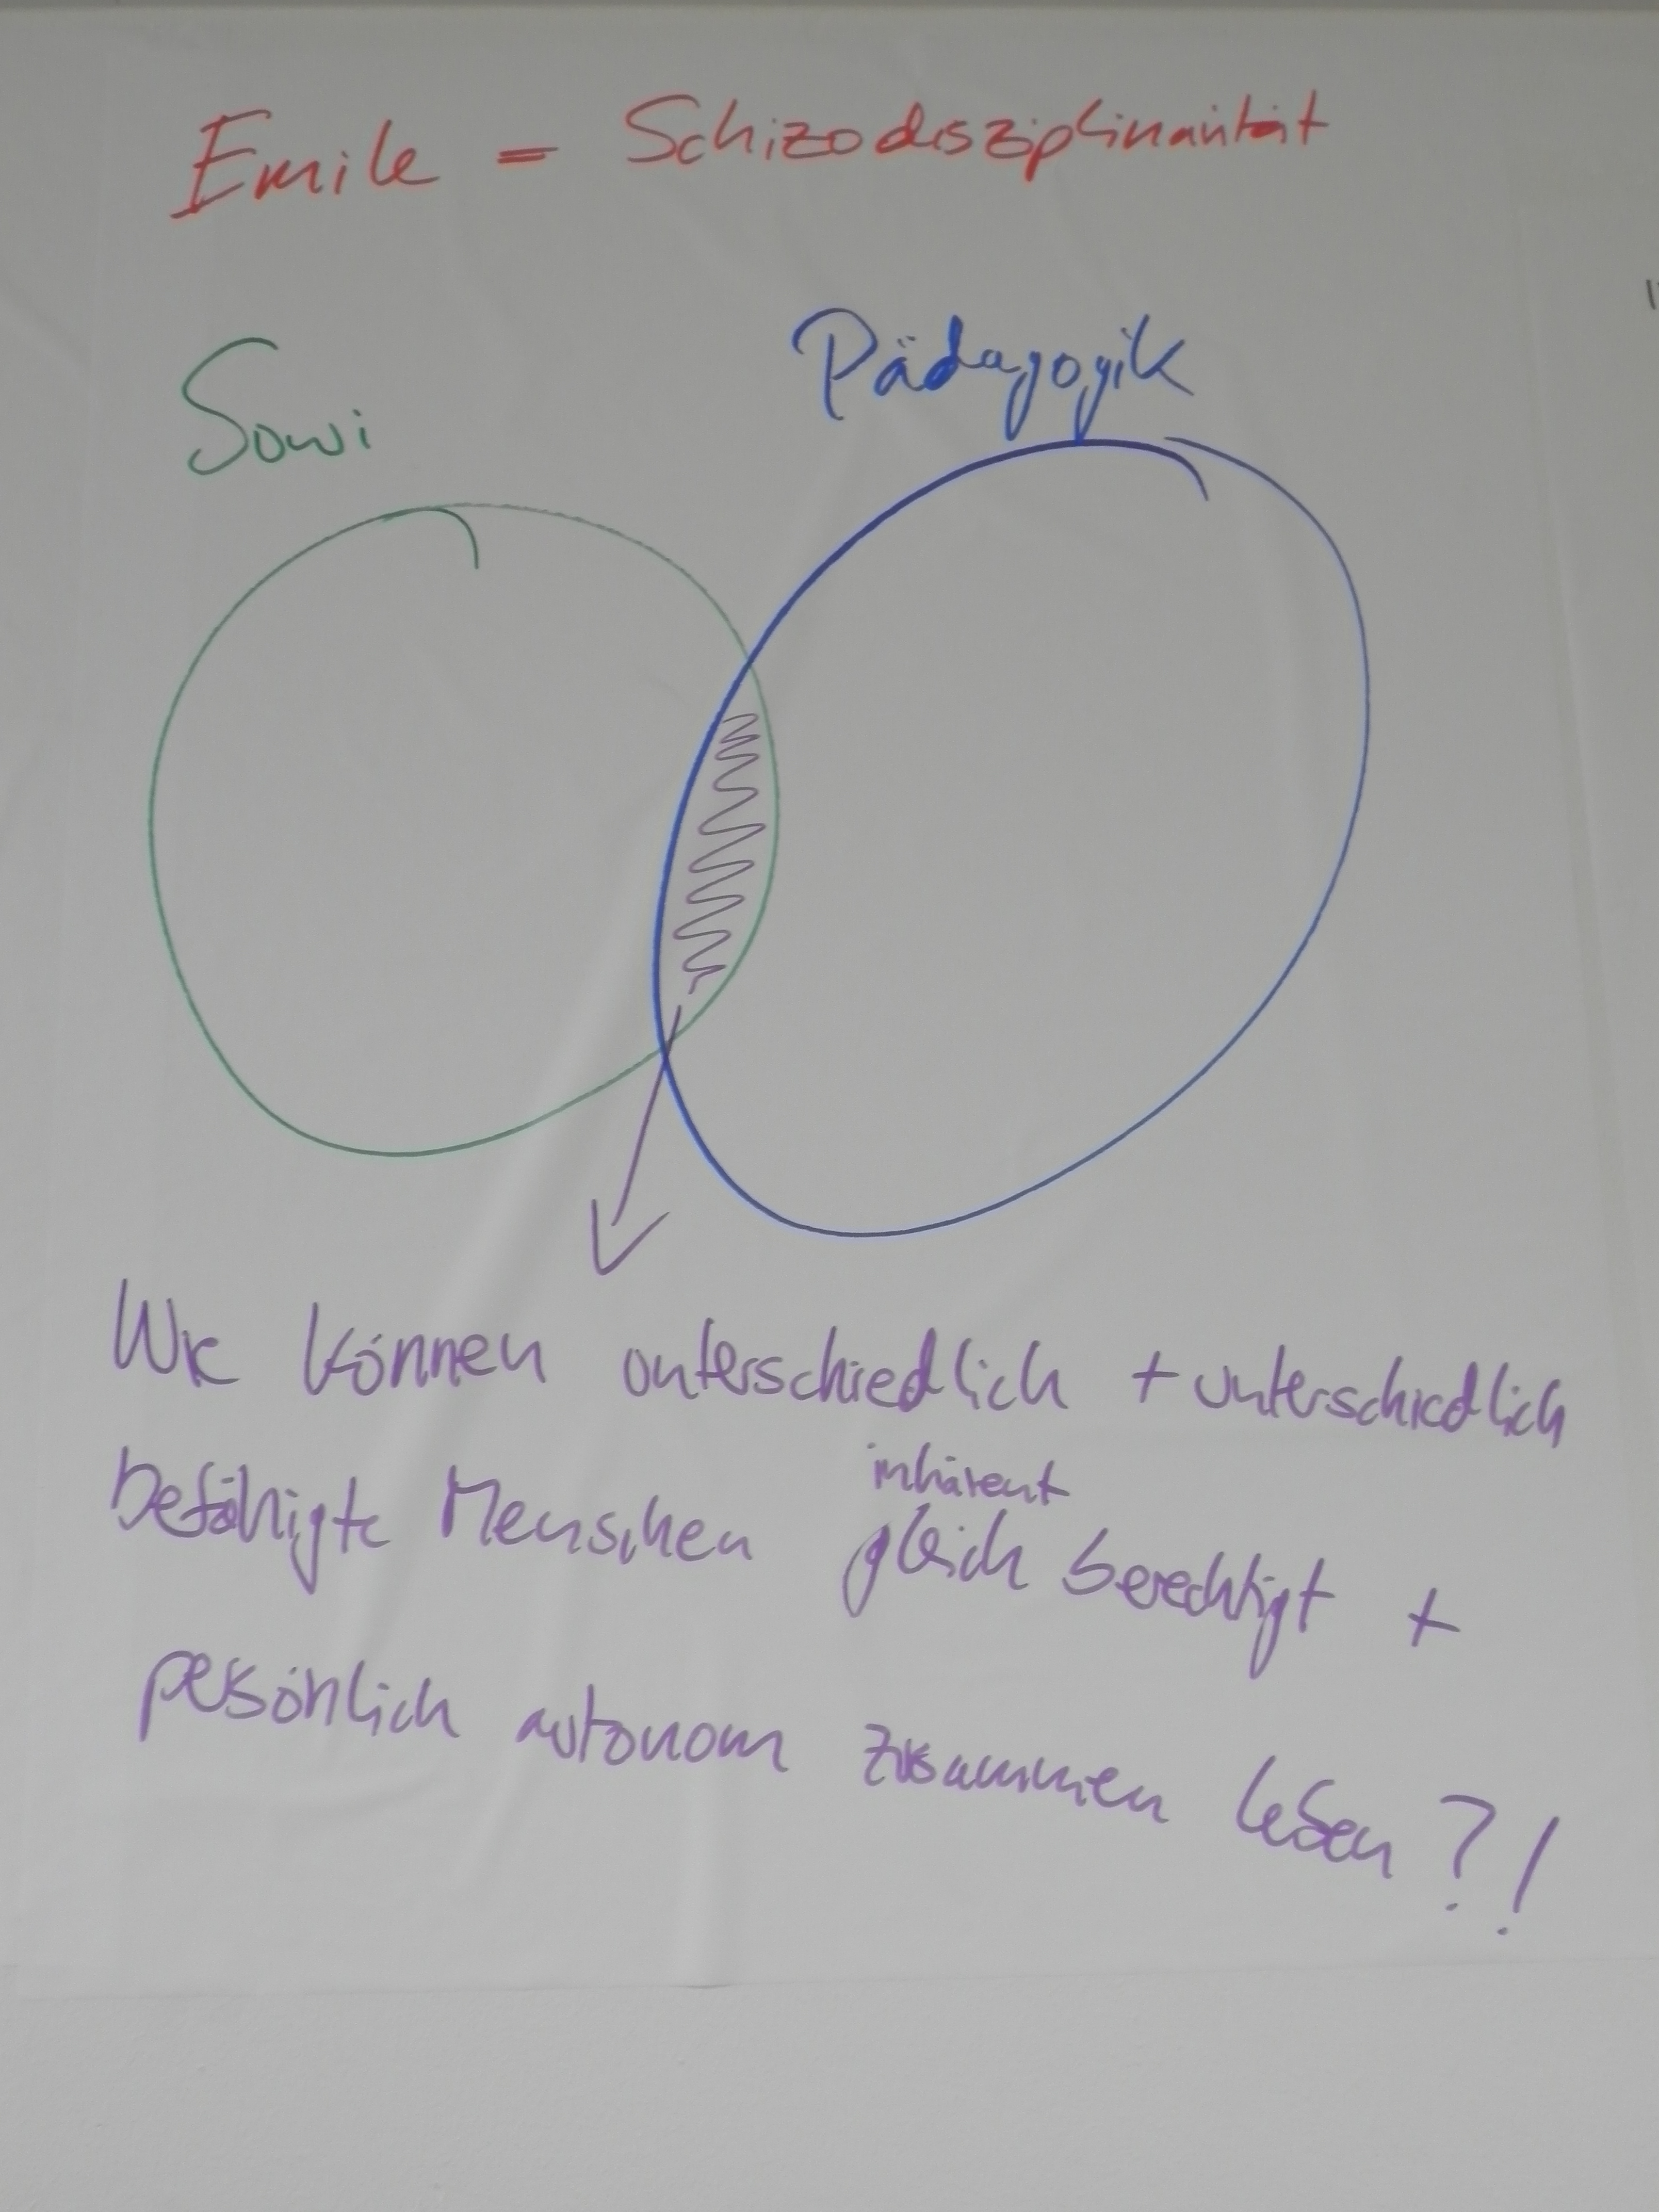 Emile = Schizodisziplinarität
Sowi
Pädagogik
Wie können unterschiedlich + unterschiedlich
inhärent
befähigte Menschen gleich berechtigt +
persönlich autonom zusammen leben?!